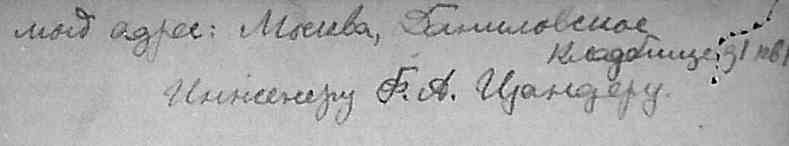 мой адрес: Москва, Даниловское
кладбище 31 кв 1
Инженеру Ф. А. Цандеру.